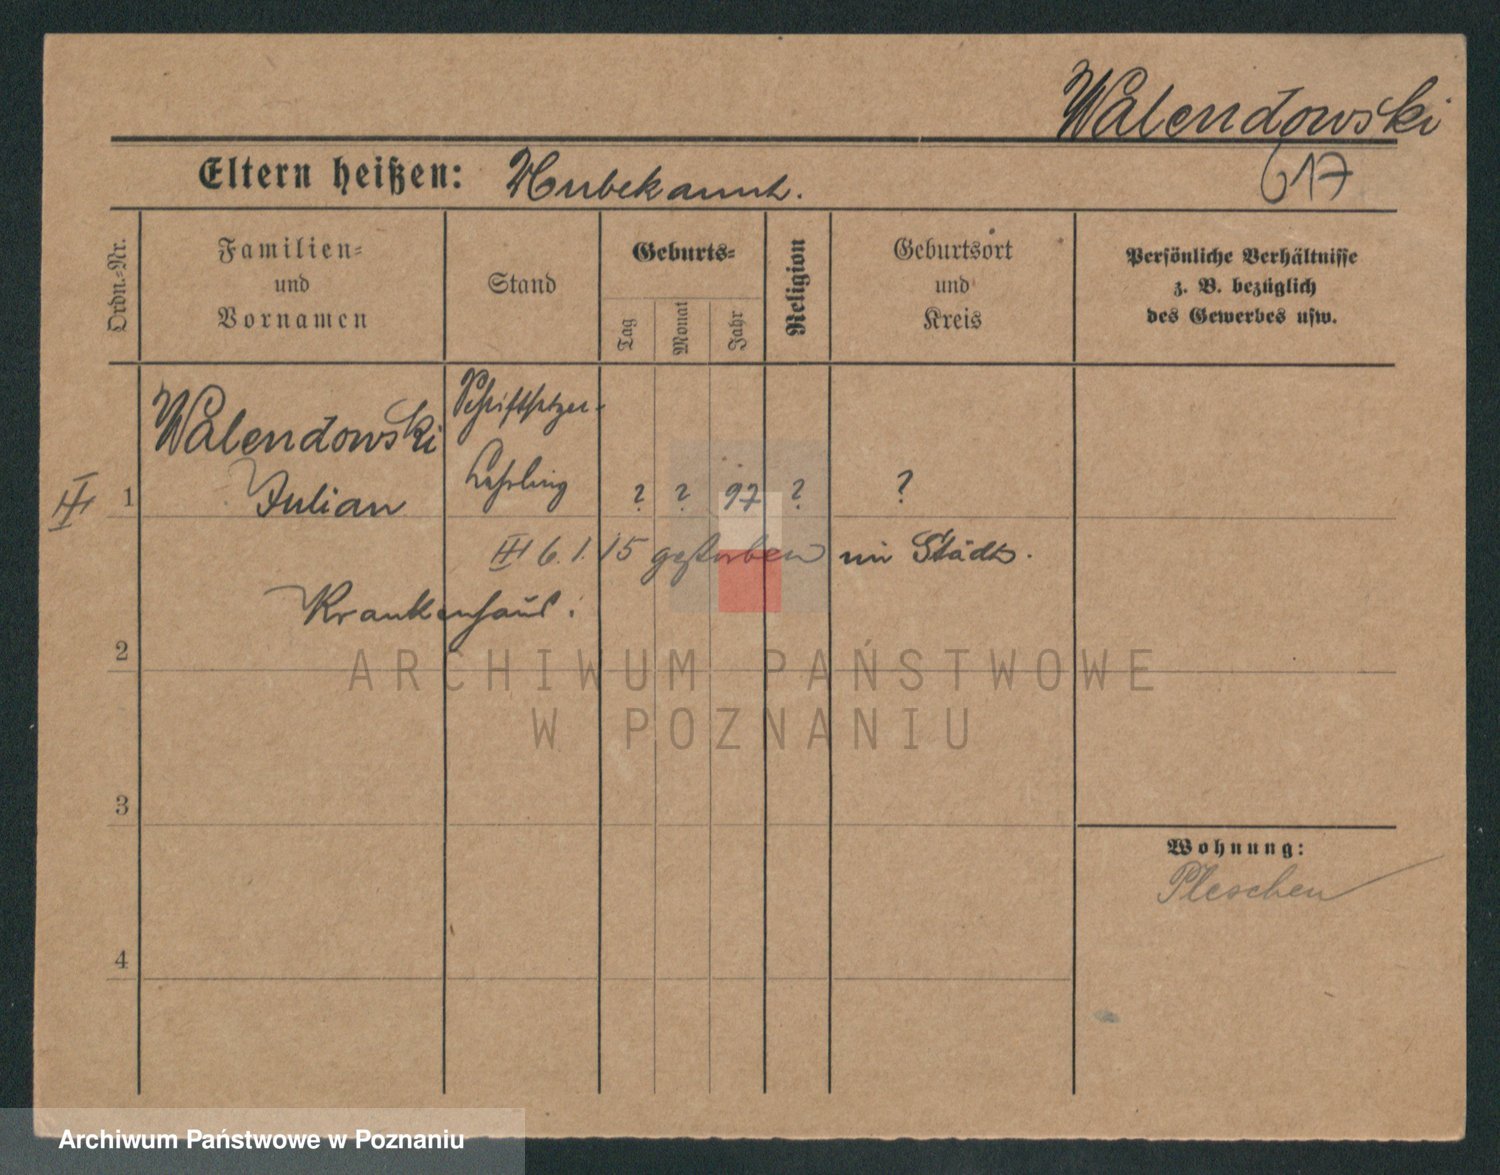 Walendowski
617
Eltern heißen: Unbekannt.
Ordn.-Nr.
Familien- und Vornamen
Stand
Geburts-
Tag
Monat
Jahr
Religion
Geburtsort und Kreis
Persönliche Verhältnisse z. B. bezüglich des Gewerbes usw.
Walendowski Schriftsetzer-
1 Julian Lehrling ? ? 97 ? ?
6. 1. 15 gestorben im Städt.
Krankenhaus.
2
ARCHIWUM PAŃSTWOWE
W POZNANIU
3
Wohnung:
Pleschen
4
Archiwum Państwowe w Poznaniu